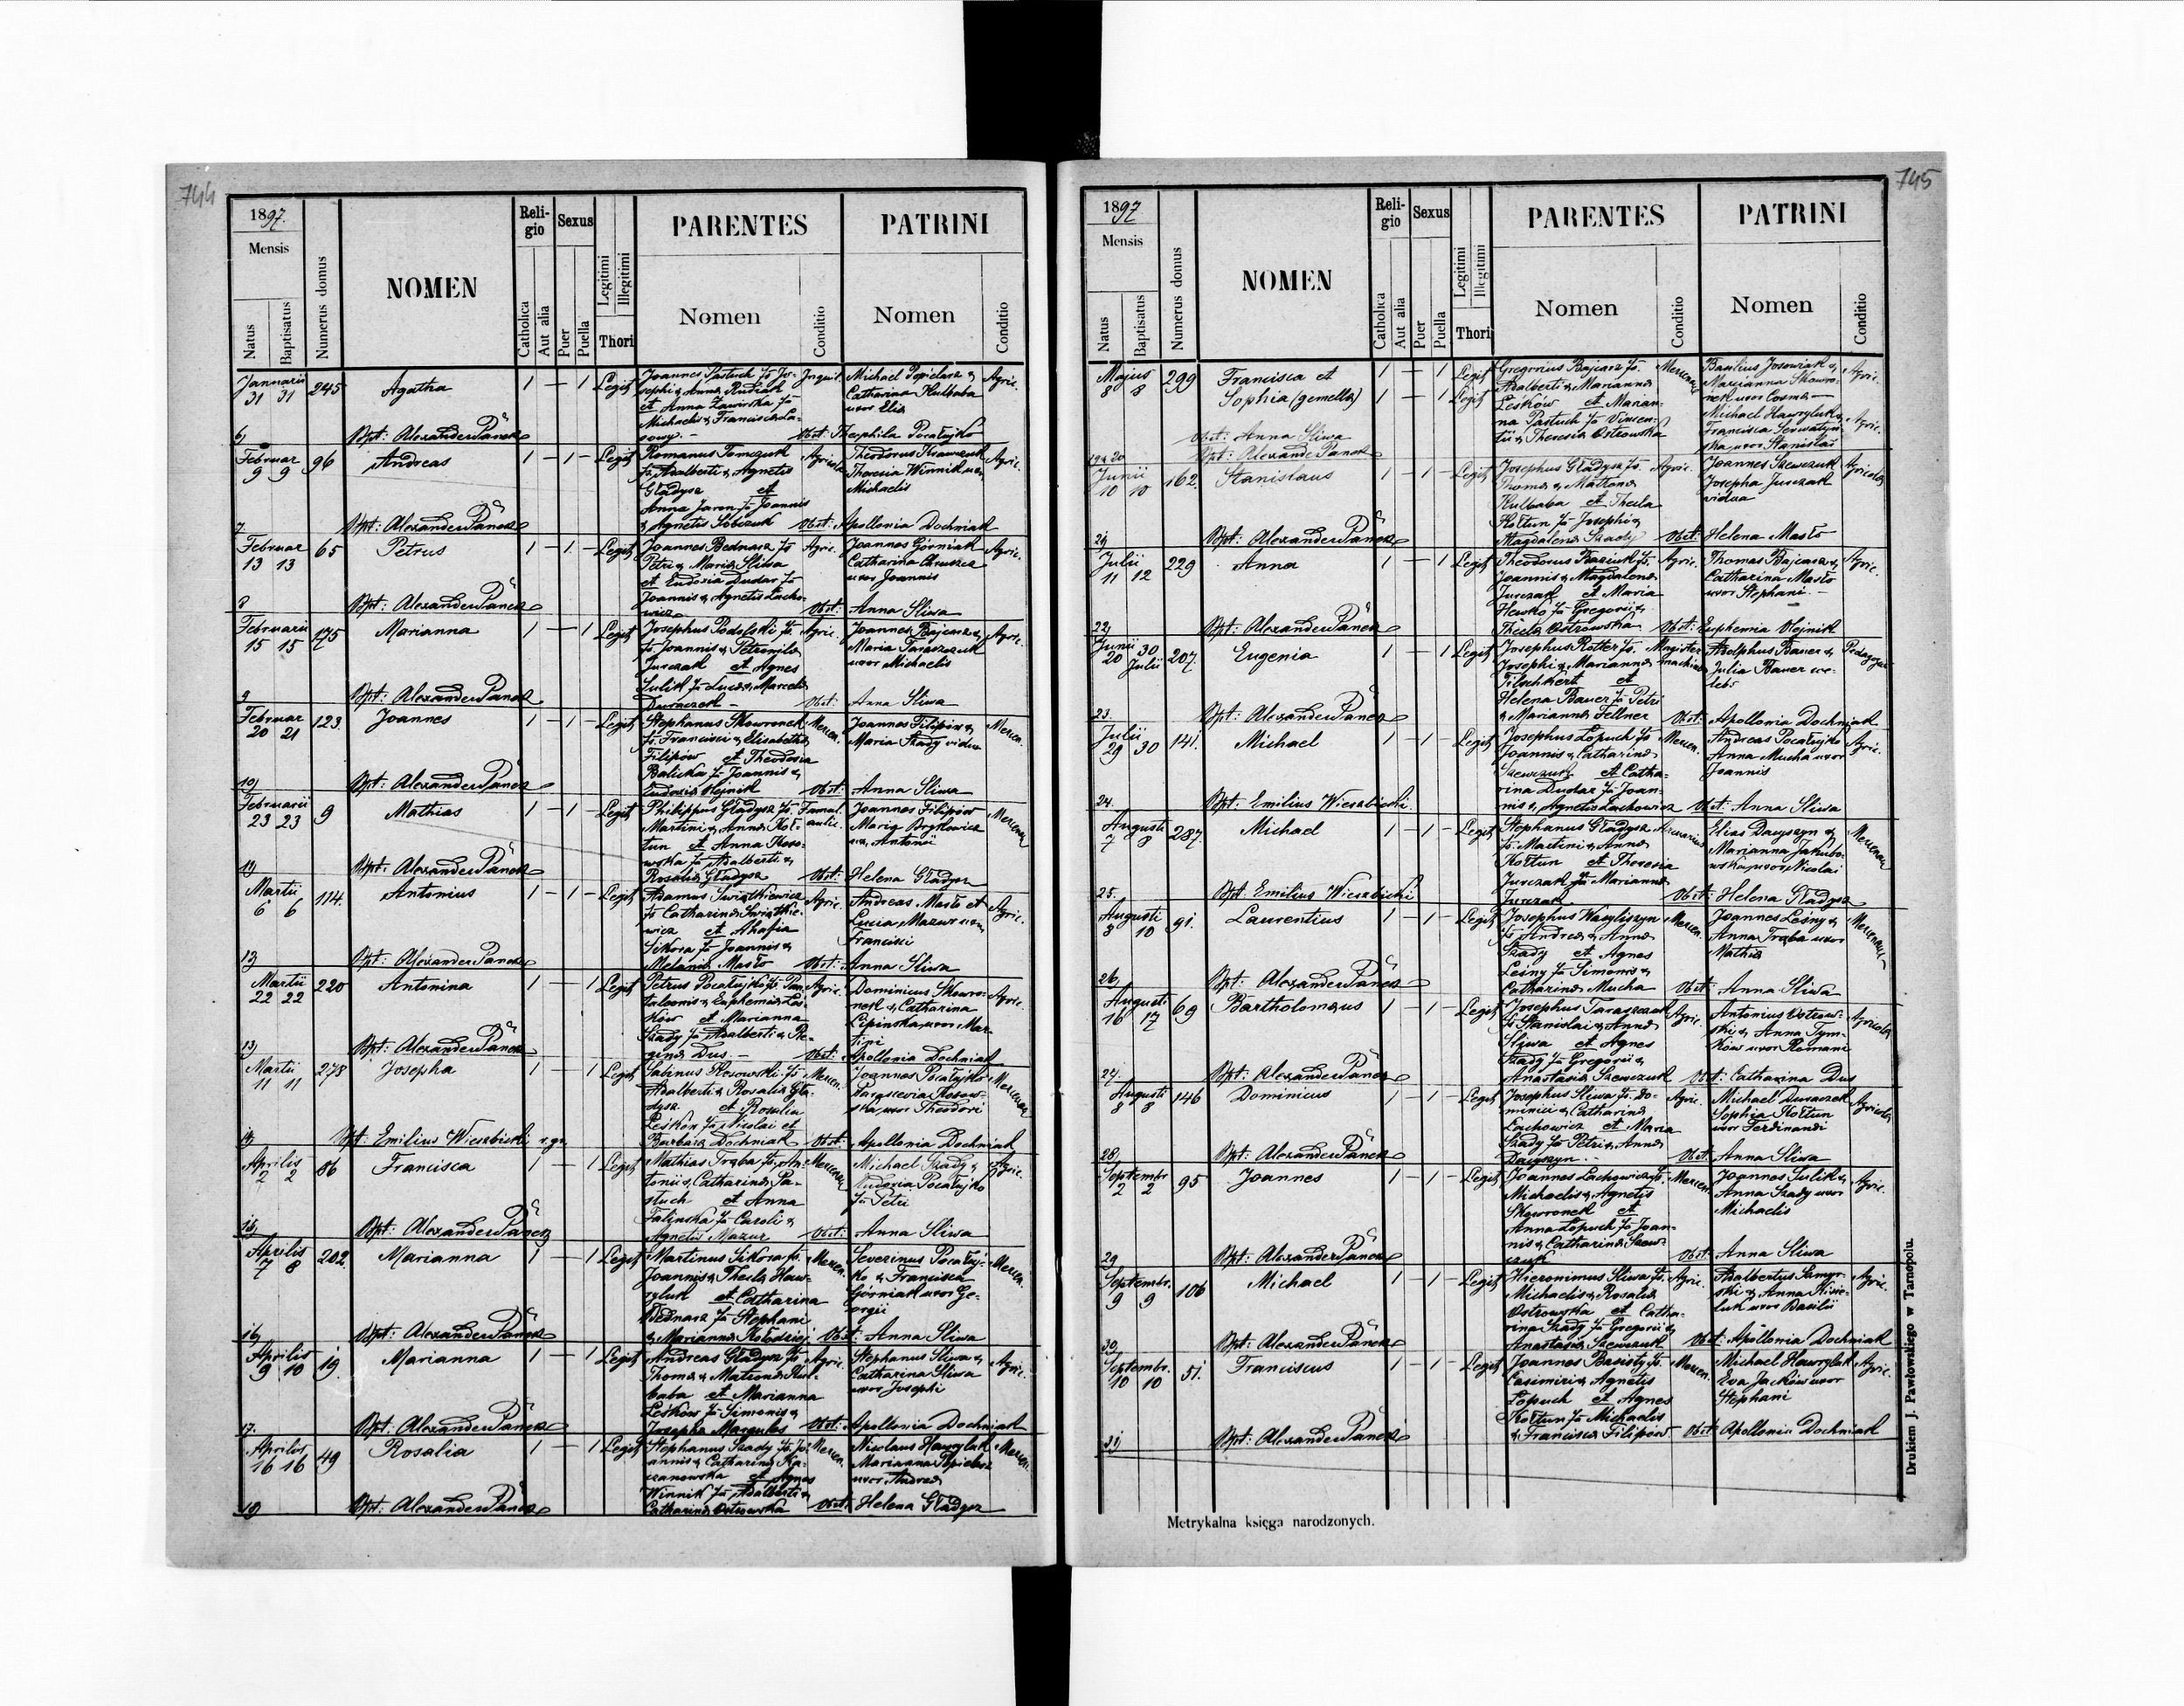 744
1897.
Mensis
Natus
Baptisatus
Numerus domus
NOMEN
Religio
Catholica
Aut alia
Sexus
Puer
Puella
Legitimi
Illegitimi
Thori
PARENTES
Nomen
Conditio
PATRINI
Nomen
Conditio
Januarii
31 31
245
Agatha
1 — 1
Legit
Joannes Pastuch fs Jo-
sephi & Anna Rudiak
et Anna Zawirska fa
Michaelis & Francisca La-
Michael Popielarz &
Catharina Kulbaba
uxor Elia
Agric.
6,
Bpt: Alexander Panek
Obst: Theophila Pocałujko
Februar
9 9
96
Andreas
1 — 1 —
Legit
Romanus Tomczuk
fs Adalberti & Agnetis
Gładysz et
Anna Jaren fa Joannis
& Agnetis Sobczuk
Agricola
Theodorus Krawczuk
Theresia Winnik uxor
Michaelis
Agric.
7
Bpt: Alexander Panek
Obst: Apollonia Dochniak
Februar
13 13
65
Petrus
1 — 1 —
Legit
Joannes Bednarz fs
Petri & Maria Sliwa
et Eudoxia Dudar fa
Joannis & Agnetis Lacho-
wicz
Agric.
Joannes Górniak
Catharina
uxor Joannis
Agric.
8
Bpt: Alexander Panek
Obst: Anna Sliwa
Februarii
15 15
175
Marianna
1 — 1
Legit
Josephus Podolski fs.
Joannis & Petronila
Jurczak et Agnes
Sulik fa Luca & Marcella
Duraczek —
Agric.
Joannes Bajcarz &
Maria Taraszczuk
uxor Michaelis
Agric.
9
Bpt: Alexander Panek
Obst: Anna Sliwa
Februar
20 21
123.
Joannes
1 — 1 —
Legit
Stephanus Skowronek
fs. Francisci & Elisabetha
Filipów et Theodosia
Balicka fa Joannis &
Eudoxia Olejnik
Mercen.
Joannes Filipów &
Maria Szady vidua
Mercen.
10,
Bpt: Alexander Panek
Obst: Anna Sliwa
Februarii
23 23
9
Mathias
1 — 1 —
Legit
Philippus Gładysz fs.
Martini & Anna Koł-
tun et Anna Koso-
wska fa Adalberti &
Rosalia Gładysz
Famul.
aulic.
Joannes Filipów
Maria Brykowicz
ux. Antonii
Bpt: Alexander Panek
Obst: Helena Gładysz
Martii
6 6
114.
Antonius
1 — 1 —
Legit
Adamus Swiątkiewicz
fs Catharina Swiątkie-
wicz et Ahafia
Sikora fa Joannis &
Melania Masło
Agric.
Andreas Masło et
Lucia Mazur uxor
Francisci
Agric.
Bpt: Alexander Panek
Obst: Anna Sliwa
Martii
22 22
220
Antonina
1 — 1
Legit
Petrus Pocałujko fs Pan-
taleonis & Euphemia Leś-
ków et Marianna
Szady fa Adalberti & Re-
gina Dus. —
Agric.
Dominicus Skowro-
nek & Catharina
Lipinska uxor Mar-
tini
Agric.
13,
Bpt: Alexander Panek
Obst: Apollonia Dochniak
Martii
11 11
278
Josepha
1 — 1
Legit
Sabinus Kosowski fs
Adalberti & Rosalia Gła-
dysz et Rosalia
Leśków fa Nicolai et
Barbara Dochniak
Mercen.
Joannes Pocałujko
Parascevia Kosow-
ska uxor Theodori
Bpt: Emilius Wieszbicki
Obst: Apollonia Dochniak
Aprilis
2 2
86
Francisca
1 — 1
Legit
Mathias Trąba fs. An-
tonii & Catharina Pa-
stuch et Anna
Falinska fa Caroli &
Agnetis Mazur
Michael Szady &
Eudoxia Pocałujko
fa Petri
Agric.
Bpt: Alexander Panek
Obst: Anna Sliwa
Aprilis
7 8
202
Marianna
1 — 1
Legit
Martinus Sikora fs.
Joannis & Thecla Haw-
ryluk et Catharina
Bednarz fa Stephani
& Marianna Kołodziej
Mercen.
Severinus Pocałuj-
ko & Francisca
Górniak uxor Ge-
orgii
Mercen.
16,
Bpt: Alexander Panek
Obst: Anna Sliwa
Aprilis
9 10
19.
Marianna
1 — 1
Legit
Andreas Gładysz fs.
Thoma & Matrona Kul-
baba et Marianna
Leśków fa Simonis &
Josepha Margulas
Agric.
Stephanus Sliwa &
Catharina Sliwa
uxor Josephi
Agric.
17.
Bpt: Alexander Panek
Obst: Apollonia Dochniak
Aprilis
16 16
49
Rosalia
1 — 1
Legit
Stephanus Szady fs. Jo-
annis & Catharina Ka-
czanowska et Agnes
Winnik fa Adalberti &
Catharina Ostrowska
Mercen.
Nicolaus Hawryluk
Marianna Popielarz
uxor Andrea
Bpt: Alexander Panek
Obst: Helena Gładysz
745
1897
Mensis
Natus
Baptisatus
Numerus domus
NOMEN
Religio
Catholica
Aut alia
Sexus
Puer
Puella
Legitimi
Illegitimi
Thori
PARENTES
Nomen
Conditio
PATRINI
Nomen
Conditio
Majus
8 8
299
Francisca et
Sophia (gemella)
1 — 1
1 — 1
Legit
Legit
Gregorius Bajcarz fs.
Adalberti & Marianna
Leśków et Marian-
na Pastuch fa Vincen-
tii & Theresia Ostrowska
Basilius Josowiak &
Marianna Skowro-
nek uxor Cosma —
Michael Hawryluk &
Francisca Serwatyn-
ska uxor Stanislai
Agric.
Agric.
Obst: Anna Sliwa
19 & 20
Bpt: Alexander Panek
Junii
10 10
162.
Stanislaus
1 — 1 —
Legit
Josephus Gładysz fs.
Thoma & Matrona
Kulbaba et Thecla
Kołtun fa Josephi &
Magdalena Szady
Agric.
Joannes Szewczuk
Josepha Jurczak
vidua
Agricola
21
Bpt: Alexander Panek
Obst: Helena Masło
Julii
11 12
229
Anna
1 — 1
Legit
Theodorus Kraziuk fs.
Joannis & Magdalena
Jurczak et Maria
Hewko fa Gregorii &
Thecla Ostrowska
Agric.
Thomas Bajcarz &
Catharina Masło
uxor Stephani. —
Agric.
22,
Bpt: Alexander Panek
Obst: Euphemia Olejnik
Junii 30
20 Julii
207.
Eugenia
1 — 1
Legit
Josephus Rotter fs.
Josephi & Marianna
Filschkert et
Helena Bauer fa Petri
& Marianna Fellner
Magister
machina
Adolphus Bauer &
Julia Bauer coe-
lebs
23.
Bpt: Alexander Panek
Obst: Apollonia Dochniak
Julii
29 30
141.
Michael
1 — 1 —
Legit
Josephus Łopuch fs
Joannis & Catharina
Szewczuk et Catha-
rina Dudar fa Joan-
nis & Agnetis Lachowicz
Mercen.
Andreas Pocałujko
Anna Mucha uxor
Joannis
Agric.
24.
Bpt: Emilius Wieszbicki.
Obst: Anna Sliwa
Augusti
7 8
287.
Michael
1 — 1 —
Legit
Stephanus Gładysz
fs. Martini & Anna
Kołtun et Theresia
Jurczak fa Marianna
Jurczak
Elias Dauyszyn &
Marianna Jakubo-
wska uxor Nicolai
25.
Bpt: Emilius Wieszbicki
Obst: Helena Gładysz
Augusti
8 10
91.
Laurentius
1 — 1 —
Legit
Josephus Wasyliszyn
fs Andrea & Anna
Szady et Agnes
Leśny fa Simonis &
Catharina Mucha
Mercen.
Joannes Leśny &
Anna Trąba uxor
Mathia
26,
Bpt: Alexander Panek
Obst: Anna Sliwa
Augusti
16 17
69
Bartholomæus
1 — 1 —
Legit
Josephus Taraszczuk
fs Stanislai & Anna
Sliwa et Agnes
Szady fa Gregorii &
Anastasia Szewczuk
Agric.
Antonius Ostrow-
ski & Anna Tym-
ków uxor Romani
Agricola
27.
Bpt: Alexander Panek
Obst: Catharina Dus
Augusti
8 8
146
Dominicus
1 — 1 —
Legit
Josephus Sliwa fs. Do-
minici & Catharina
Lachowicz et Maria
Szady fa Petri & Anna
Dauyszyn. .
Agric.
Michael Duraczek
Sophia Kołtun
uxor Ferdinandi
Agricola
28,
Bpt: Alexander Panek
Obst: Anna Sliwa
Septembr
2 2
95
Joannes
1 — 1 —
Legit
Joannes Lachowicz fs.
Michaelis & Agnetis
Skowronek et
Anna Łopuch fa Joan-
nis & Catharina Szew-
czuk
Mercen.
Joannes Sulik &
Anna Szady uxor
Michaelis
Agric.
29
Bpt: Alexander Panek
Obst: Anna Sliwa
Septembr.
9 9
106
Michael
1 — 1 —
Legit
Hieronimus Sliwa fs.
Michaelis & Rosalia
Ostrowska et Catha-
rina Szady fa Gregorii &
Anastasia Szewczuk
Agric.
Adalbertus Samyr-
ski & Anna Kisie-
luk uxor Basilii
Agric.
30,
Bpt: Alexander Panek
Obst: Apollonia Dochniak
Septembr.
10 10
51.
Franciscus
1 — 1 —
Legit
Joannes Bzdysty fs.
Casimiri & Agnetis
Łopuch et Agnes
Kołtun fa Michaelis
& Francisca Filipów
Mercen.
Michael Hawryluk
Eva Jacków uxor
Stephani
Agric.
31,
Bpt: Alexander Panek
Obst: Apollonia Dochniak
Metrykalna księga narodzonych.
Drukiem J. Pawłowskiego w Tarnopolu.